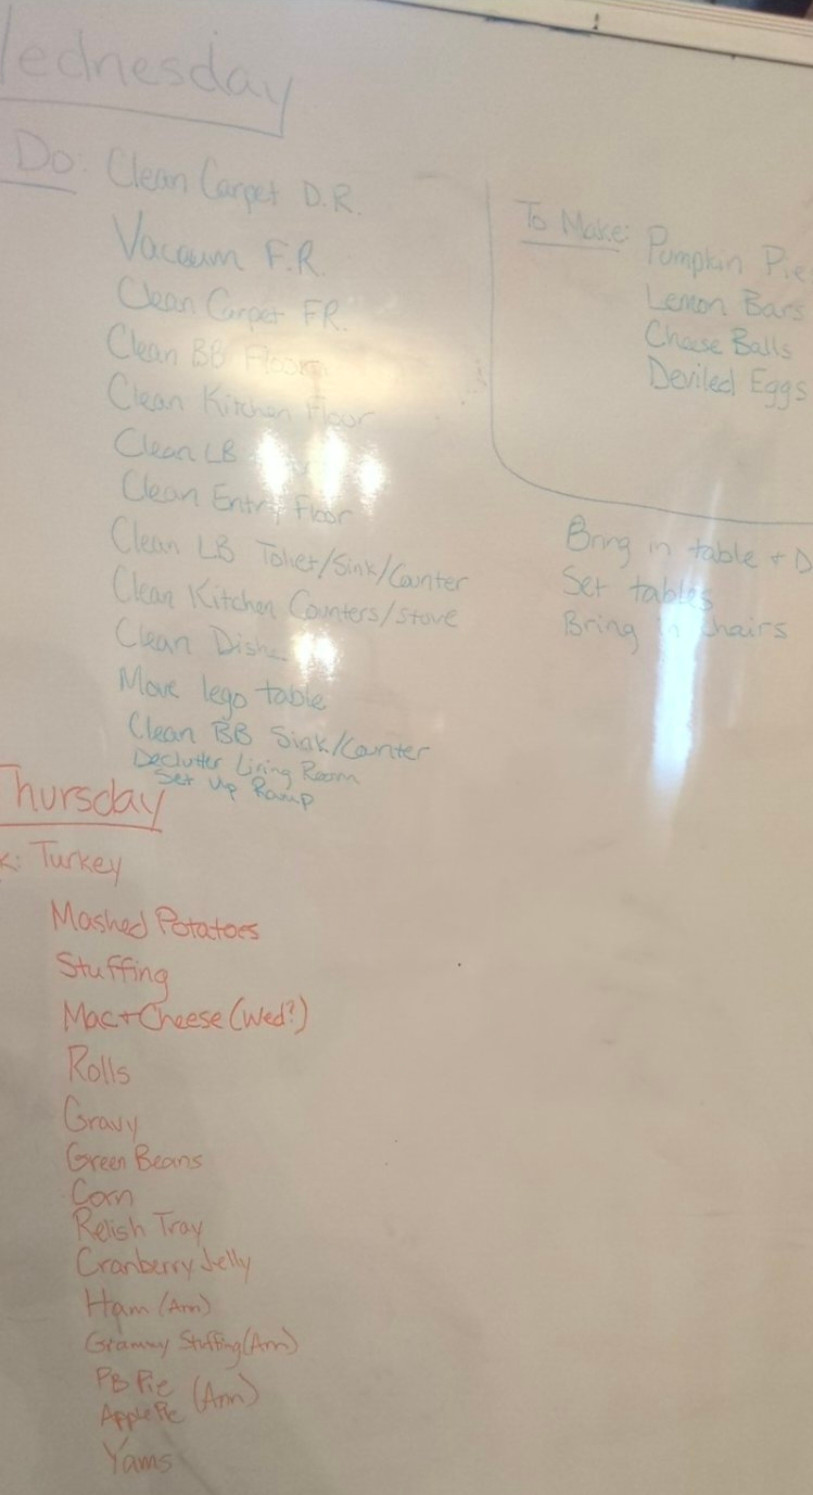 Wednesday
Do: Clean Carpet D.R.
Vacuum F.R.
Clean Carpet FR.
Clean BB Floor
Clean Kitchen Floor
Clean LB
Clean Entry Floor
Clean LB Toilet/Sink/Counter
Clean Kitchen Counters/Stove
Clean Dishes
Move lego table
Clean BB Sink/Counter
Declutter Living Room
Set Up Ramp
To Make: Pumpkin Pie
Lemon Bars
Cheese Balls
Deviled Eggs
Bring in table + D
Set tables
Bring in chairs
Thursday
k: Turkey
Mashed Potatoes
Stuffing
Mac+Cheese (Wed?)
Rolls
Gravy
Green Beans
Corn
Relish Tray
Cranberry Jelly
Ham (Ann)
Grammy Stuffing (Ann)
PB Pie (Ann)
Apple Pie
Yams